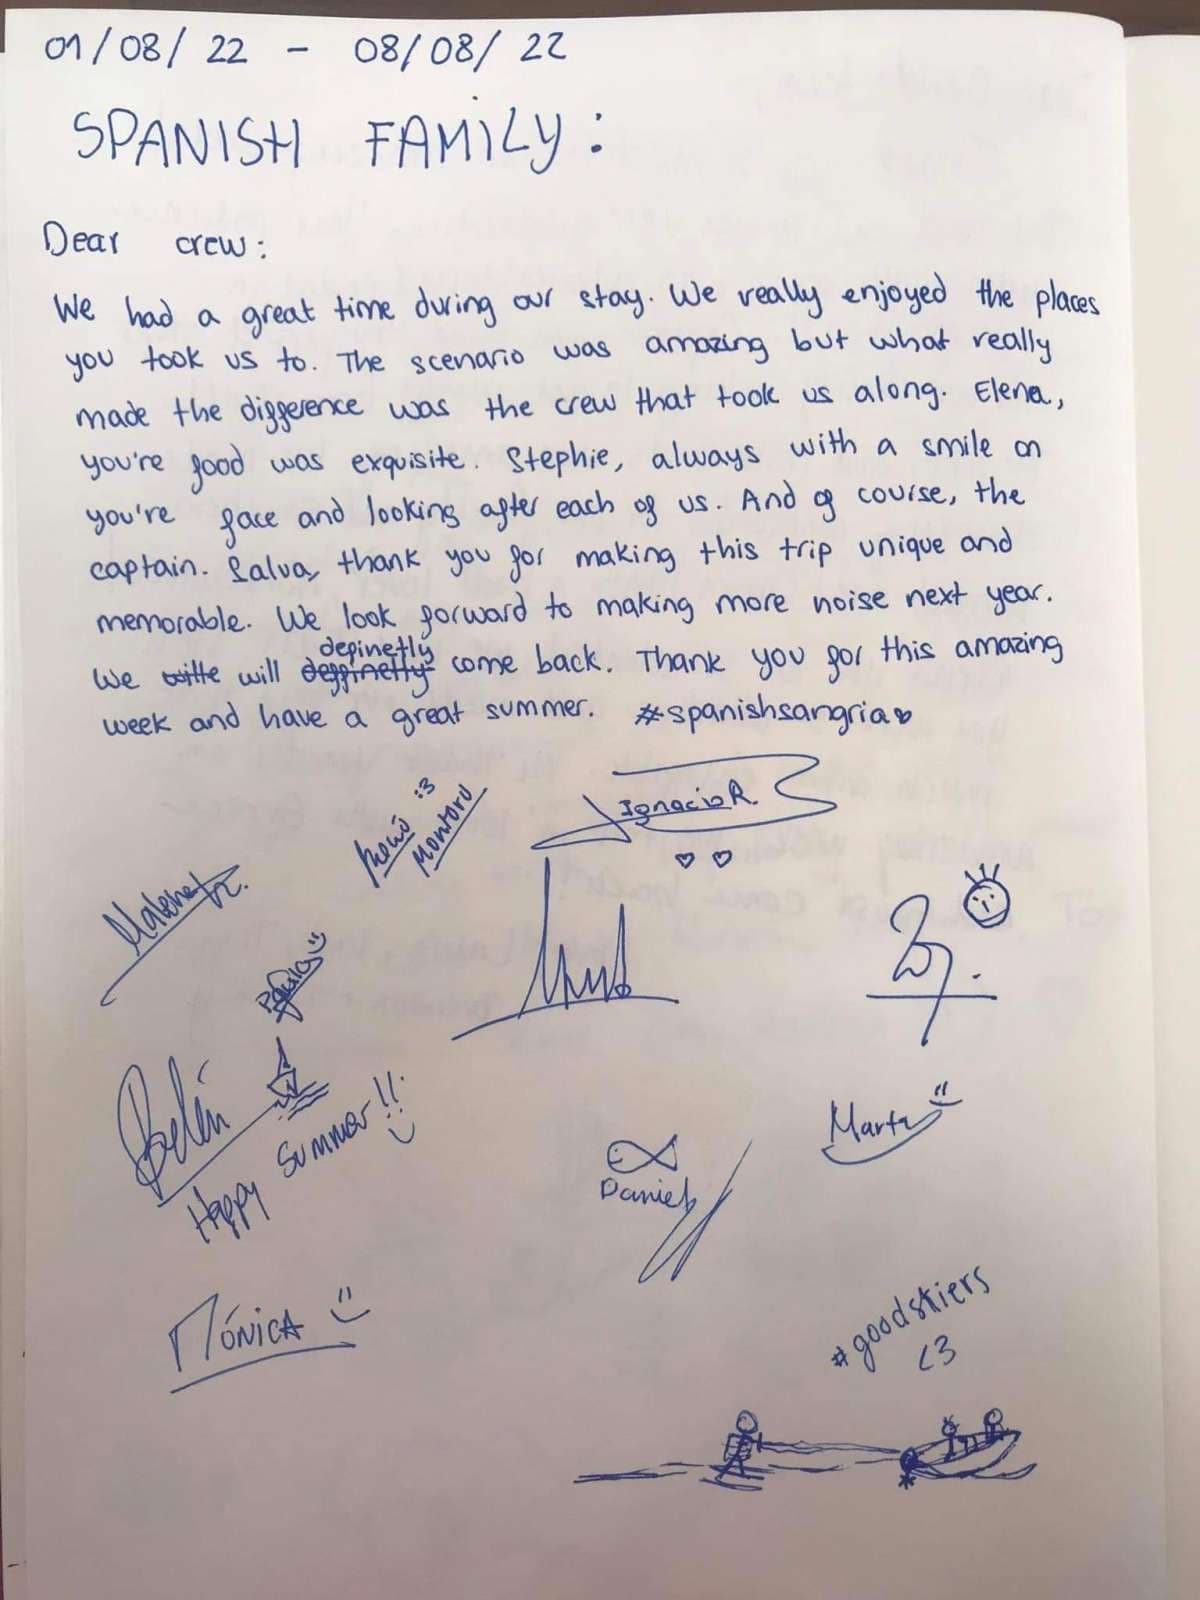 01/08/22 - 08/08/22
SPANISH FAMILY:
Dear crew:
We had a great time during our stay. We really enjoyed the places
you took us to. The scenario was amazing but what really
made the difference was the crew that took us along. Elena,
you're food was exquisite. Stephie, always with a smile on
you're face and looking after each of us. And of course, the
captain. Salva, thank you for making this trip unique and
memorable. We look forward to making more noise next year.
definetly
We will come back. Thank you for this amazing
week and have a great summer. #spanishsangria♡
:3
Montoro
Ignacio R.
♡ ♡
Paula
Belén
Happy Summer!!
Marta
Daniel
MÓNICA
#goodskiers
<3